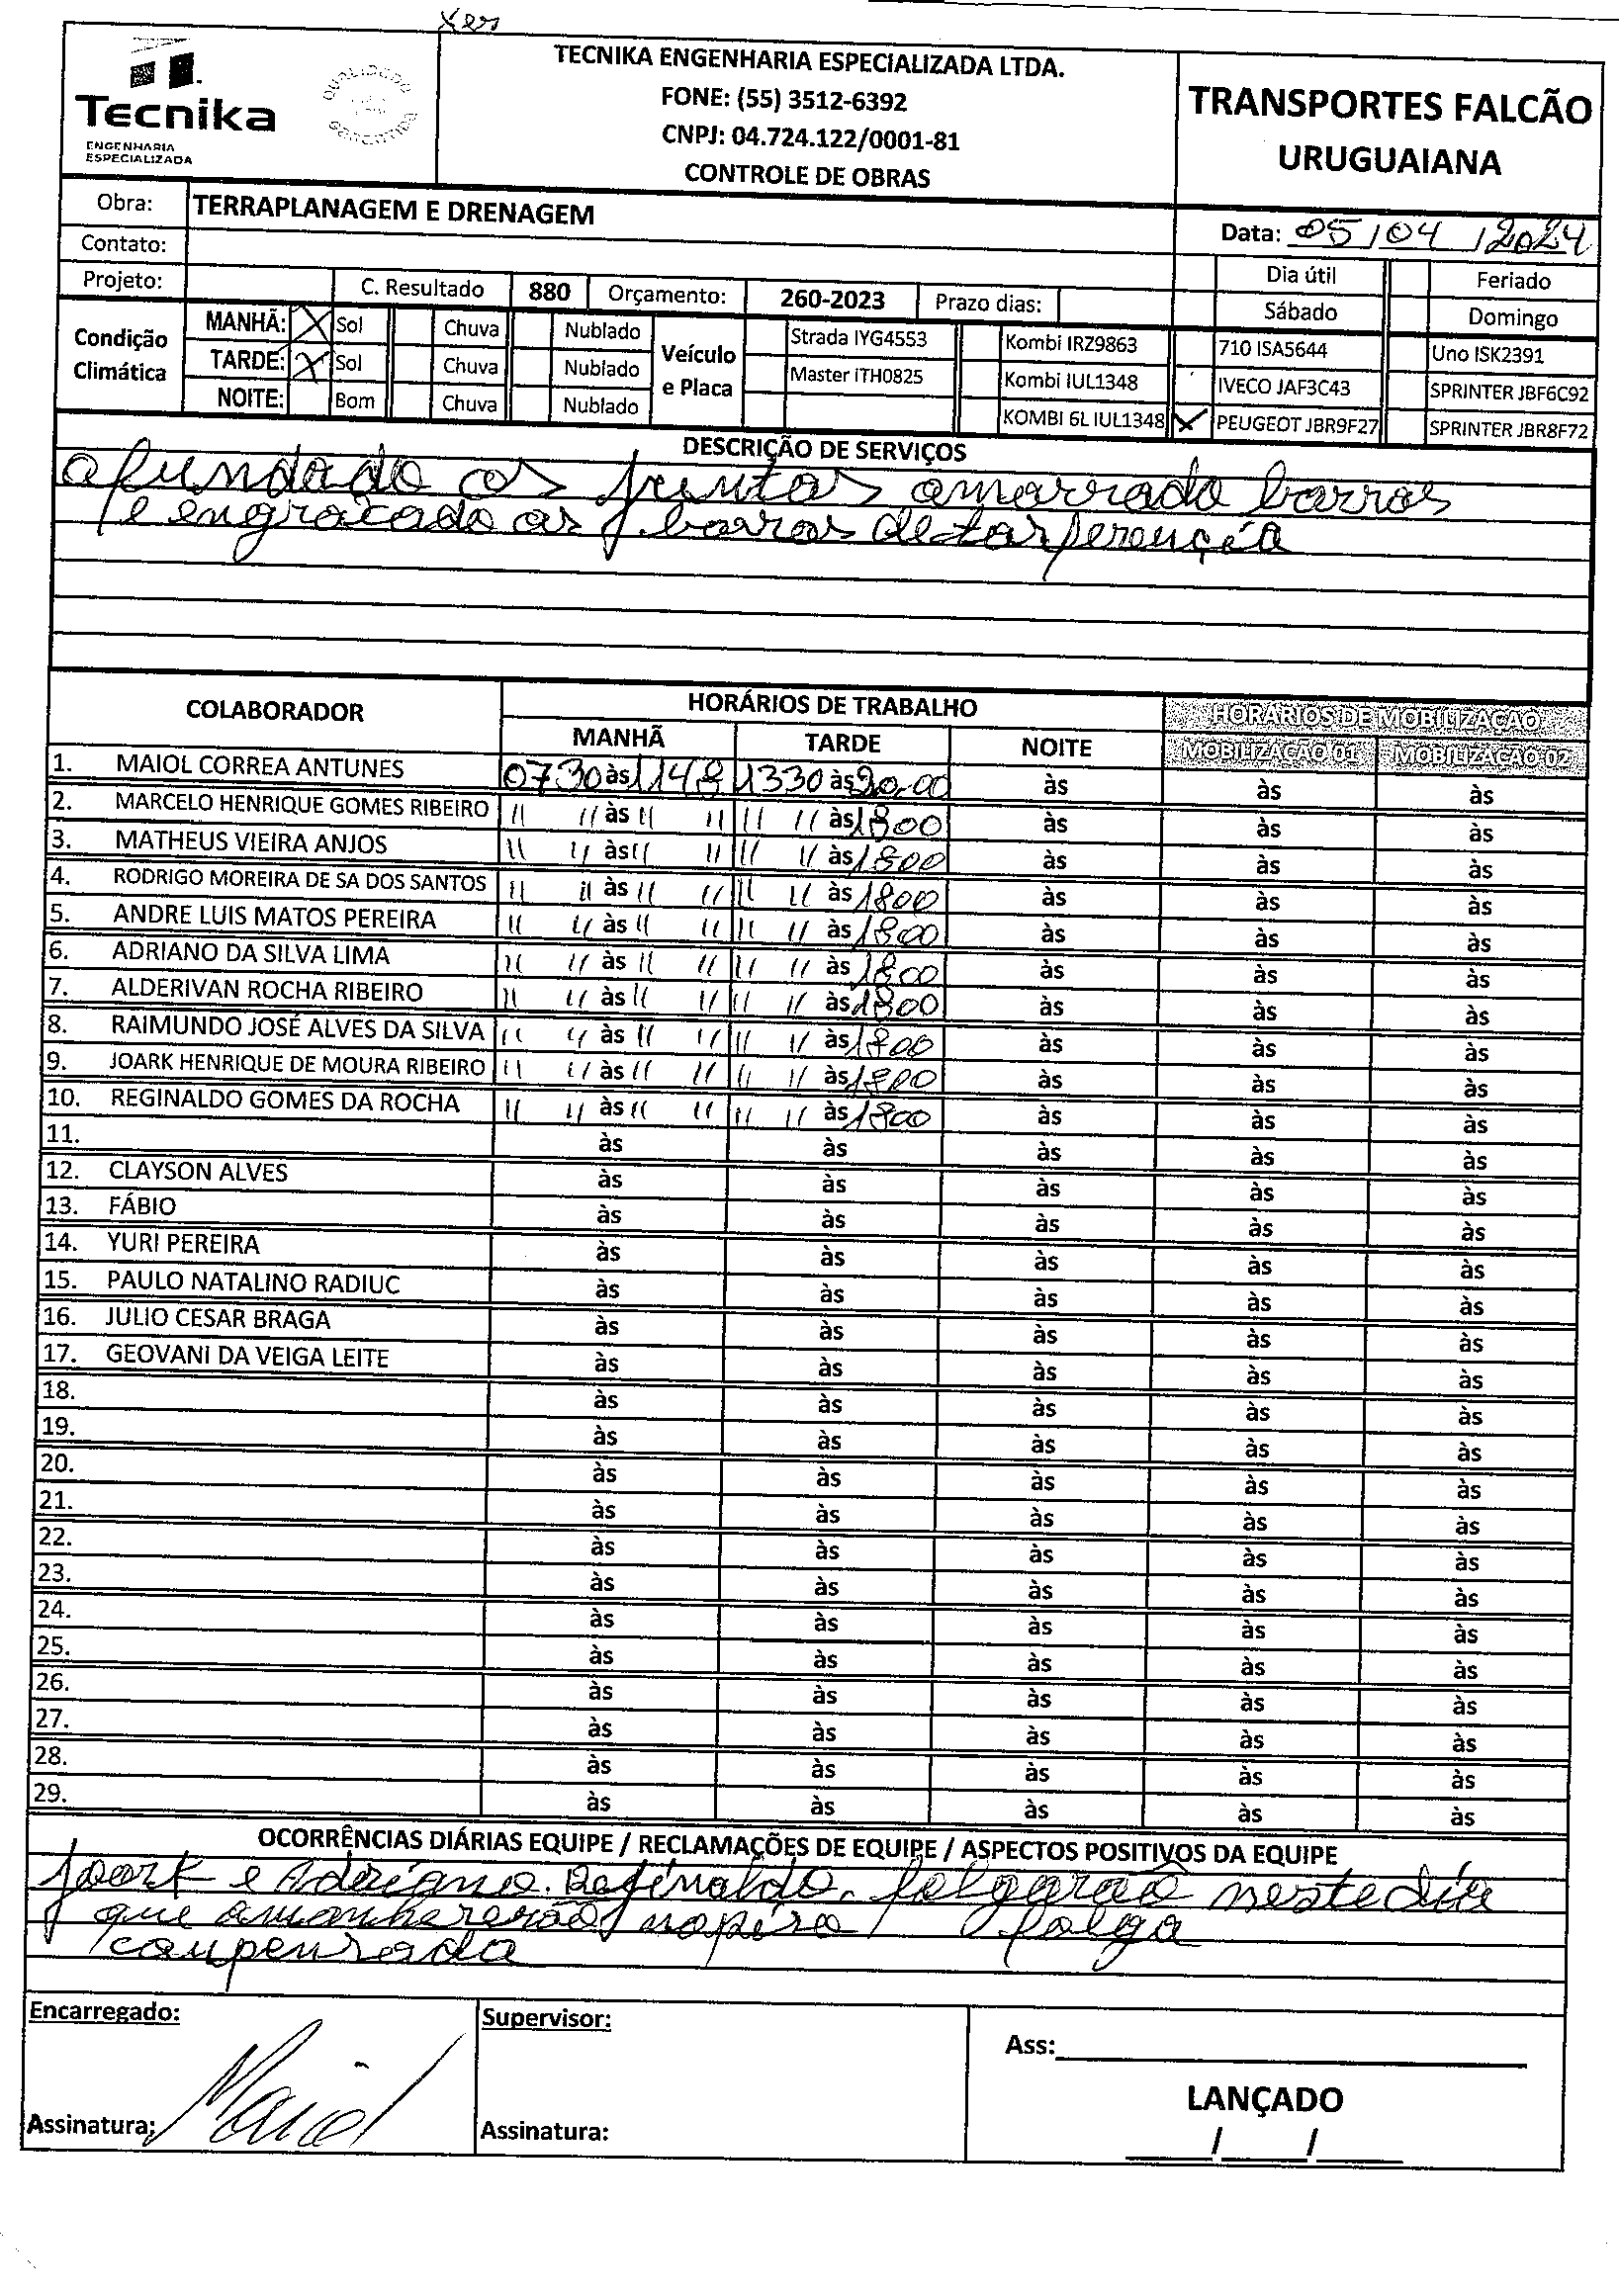 Tecnika
ENGENHARIA
ESPECIALIZADA
TECNIKA ENGENHARIA ESPECIALIZADA LTDA.
FONE: (55) 3512-6392
CNPJ: 04.724.122/0001-81
CONTROLE DE OBRAS
TRANSPORTES FALCÃO
URUGUAIANA
Obra: TERRAPLANAGEM E DRENAGEM
Data: 05/04/2024
Contato:
Dia útil Feriado
Projeto: C. Resultado 880 Orçamento: 260-2023 Prazo dias:
Sábado Domingo
Condição Climática
MANHÃ: X Sol Chuva Nublado
TARDE: X Sol Chuva Nublado
NOITE: Bom Chuva Nublado
Veículo e Placa
Strada IYG4553 Kombi IRZ9863 710 ISA5644 Uno ISK2391
Master ITH0825 Kombi IUL1348 IVECO JAF3C43 SPRINTER JBF6C92
KOMBI 6L IUL1348 X PEUGEOT JBR9F27 SPRINTER JBR8F72
DESCRIÇÃO DE SERVIÇOS
afundado as juntas amarrado barras
e engraxado as barras de
COLABORADOR HORÁRIOS DE TRABALHO HORÁRIOS DE MOBILIZAÇÃO
MANHÃ TARDE NOITE MOBILIZAÇÃO 01 MOBILIZAÇÃO 02
1. MAIOL CORREA ANTUNES 0730 às 1148 1330 às 20:00 às às às
2. MARCELO HENRIQUE GOMES RIBEIRO " " às " " " " às 1800 às às às
3. MATHEUS VIEIRA ANJOS " " às " " " " às 1800 às às às
4. RODRIGO MOREIRA DE SA DOS SANTOS " " às " " " " às 1800 às às às
5. ANDRE LUIS MATOS PEREIRA " " às " " " " às 1800 às às às
6. ADRIANO DA SILVA LIMA " " às " " " " às 1800 às às às
7. ALDERIVAN ROCHA RIBEIRO " " às " " " " às 1800 às às às
8. RAIMUNDO JOSÉ ALVES DA SILVA " " às " " " " às 1800 às às às
9. JOARK HENRIQUE DE MOURA RIBEIRO " " às " " " " às 1800 às às às
10. REGINALDO GOMES DA ROCHA " " às " " " " às 1800 às às às
11. às às às às às
12. CLAYSON ALVES às às às às às
13. FÁBIO às às às às às
14. YURI PEREIRA às às às às às
15. PAULO NATALINO RADIUC às às às às às
16. JULIO CESAR BRAGA às às às às às
17. GEOVANI DA VEIGA LEITE às às às às às
18. às às às às às
19. às às às às às
20. às às às às às
21. às às às às às
22. às às às às às
23. às às às às às
24. às às às às às
25. às às às às às
26. às às às às às
27. às às às às às
28. às às às às às
29. às às às às às
OCORRÊNCIAS DIÁRIAS EQUIPE / RECLAMAÇÕES DE EQUIPE / ASPECTOS POSITIVOS DA EQUIPE
Joark e Adriano. Reginaldo. folgarão neste dia
que folga
Encarregado: Supervisor:
Ass:
LANÇADO
Assinatura: Maiol Assinatura:
/ /